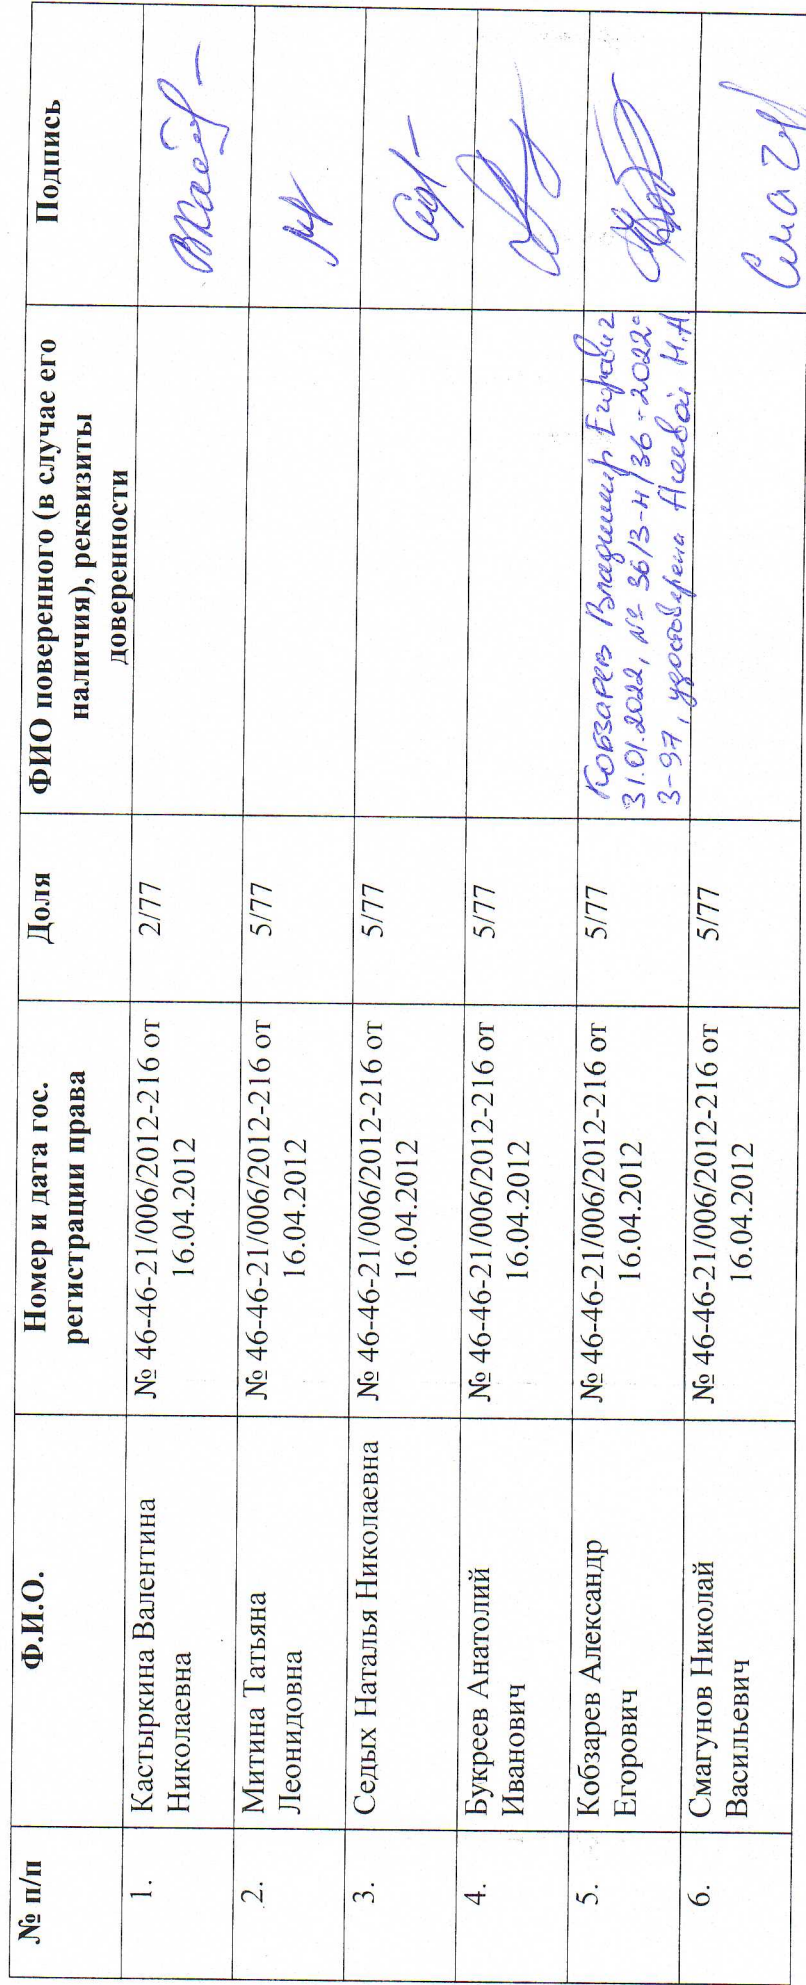 № п/п Ф.И.О. Номер и дата гос. регистрации права Доля ФИО поверенного (в случае его наличия), реквизиты доверенности Подпись
1. Кастыркина Валентина Николаевна № 46-46-21/006/2012-216 от 16.04.2012 2/77
2. Митина Татьяна Леонидовна № 46-46-21/006/2012-216 от 16.04.2012 5/77
3. Седых Наталья Николаевна № 46-46-21/006/2012-216 от 16.04.2012 5/77
4. Букреев Анатолий Иванович № 46-46-21/006/2012-216 от 16.04.2012 5/77
5. Кобзарев Александр Егорович № 46-46-21/006/2012-216 от 16.04.2012 5/77 Кобзарев Владимир Егорович 31.01.2022, № 36/3-н/36-2022- 3-97, удостоверена
6. Смагунов Николай Васильевич № 46-46-21/006/2012-216 от 16.04.2012 5/77